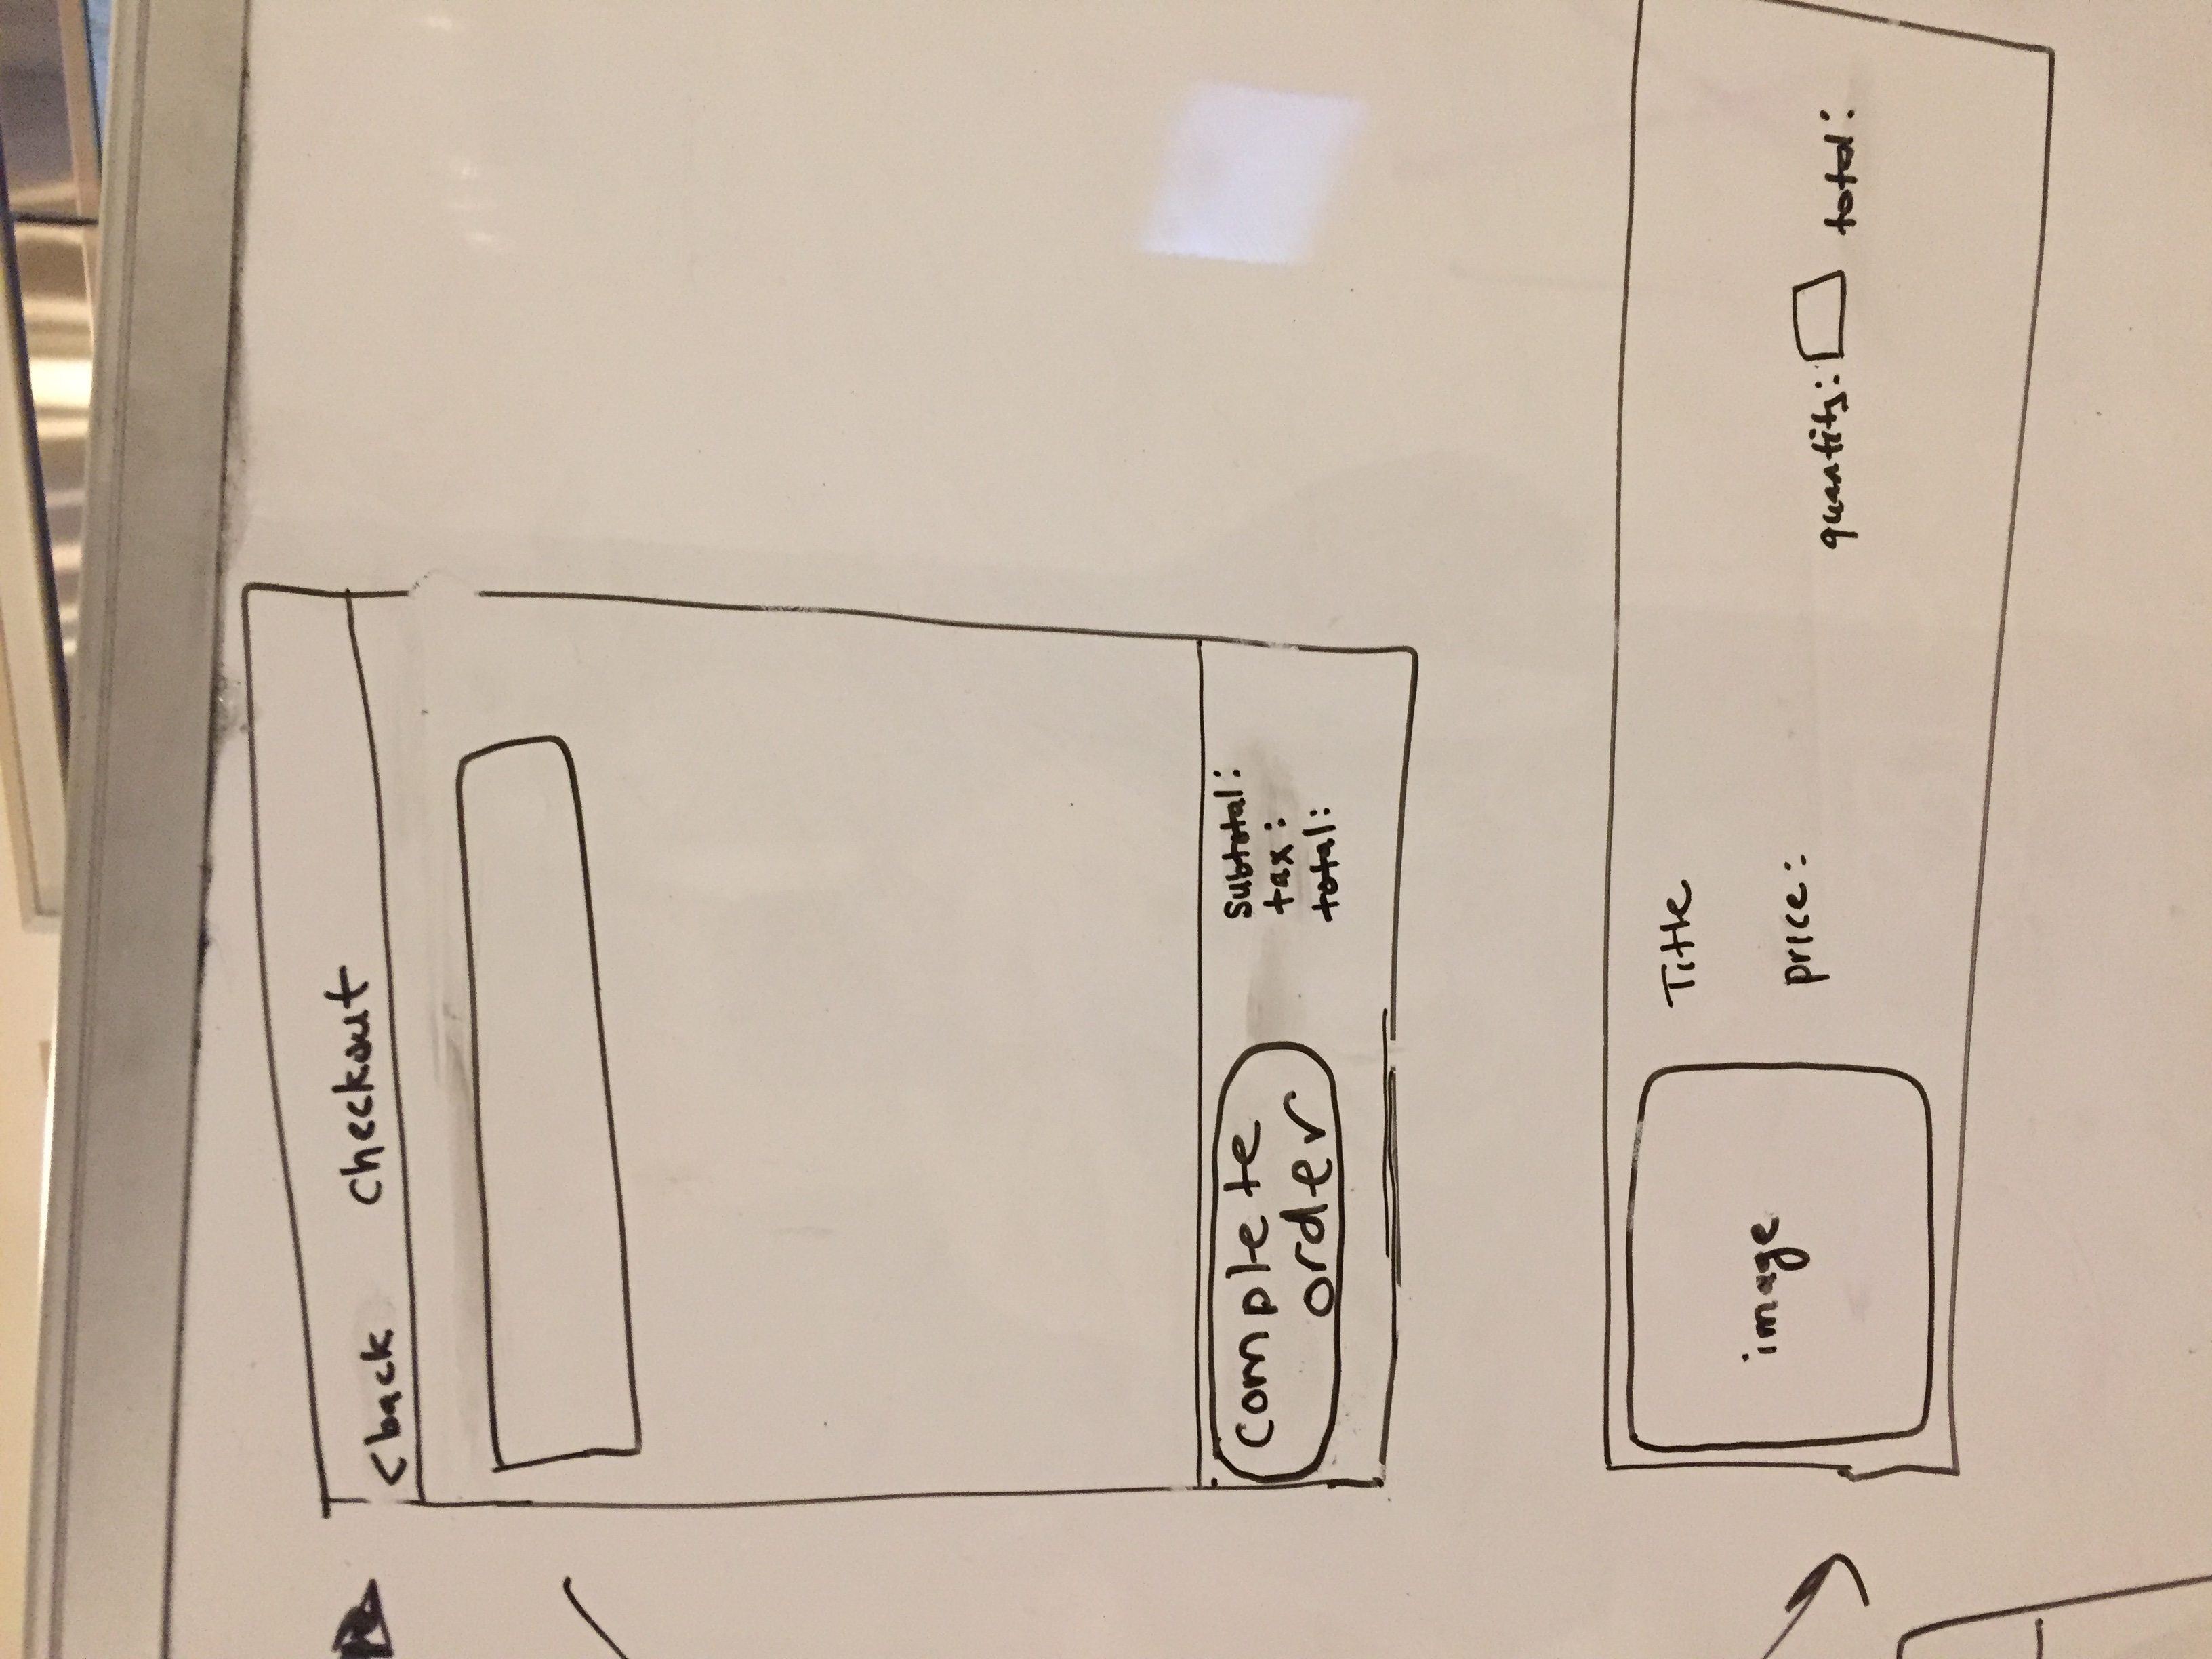 <back checkout
complete
order
Subtotal:
tax:
total:
image
Title
price:
quantity: total: